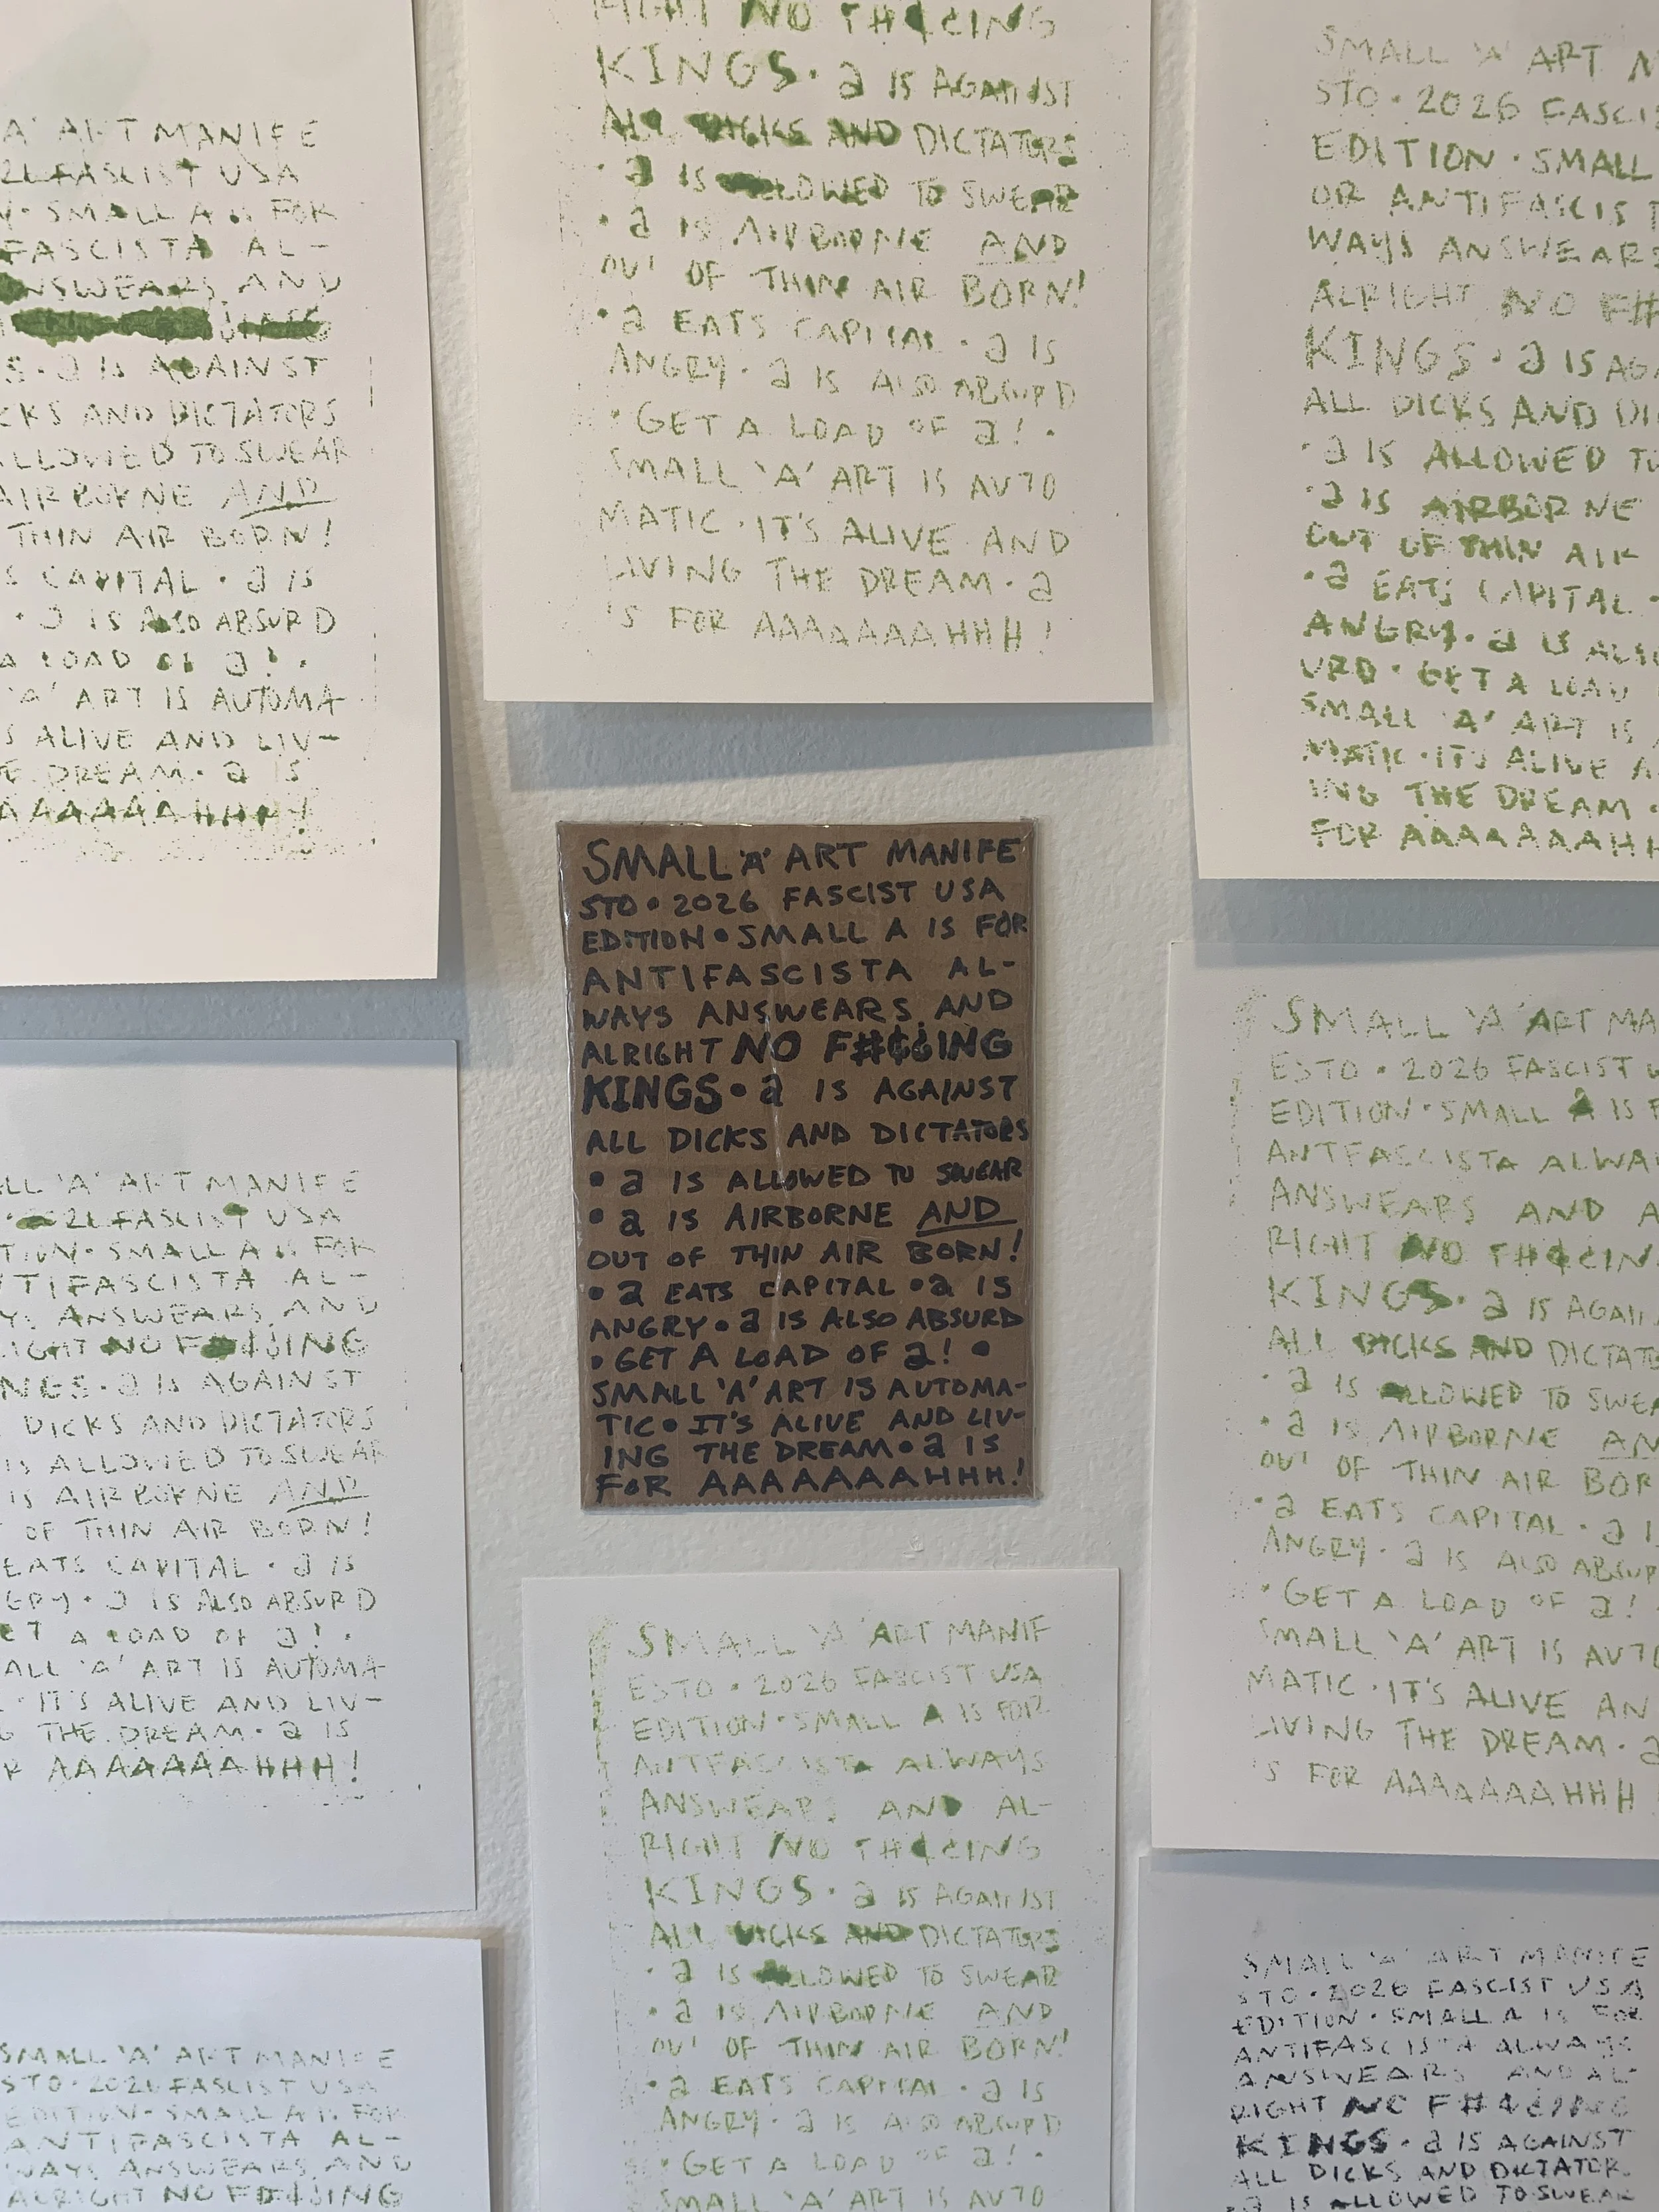 A' ART MANIFE
FASCIST USA
SMALL A IS FOR
FASCISTA AL-
ANSWEARS AND
IS AGAINST
CKS AND DICTATORS
ALLOWED TO SWEAR
AIRBORNE AND
THIN AIR BORN!
S CAPITAL • a IS
• a IS ALSO ABSURD
A LOAD OF a! •
'A' ART IS AUTOMA-
S ALIVE AND LIV-
E DREAM • a IS
AAAAAAAHHH!
RIGHT NO F#¢¿ING
KINGS • a IS AGAINST
ALL DICKS AND DICTATORS
• a IS ALLOWED TO SWEAR
• a IS AIRBORNE AND
OUT OF THIN AIR BORN!
• a EATS CAPITAL • a IS
ANGRY • a IS ALSO ABSURD
• GET A LOAD OF a! •
SMALL 'A' ART IS AUTO
MATIC • IT'S ALIVE AND
LIVING THE DREAM • a
'S FOR AAAAAAAHHH!
SMALL 'A' ART M
STO • 2026 FASCIS
EDITION • SMALL
OR ANTIFASCIST
WAYS ANSWEARS
ALRIGHT NO F#
KINGS • a IS AGA
ALL DICKS AND DI
• a IS ALLOWED TO
• a IS AIRBORNE
OUT OF THIN AIR
• a EATS CAPITAL •
ANGRY • a IS ALSO
URD • GET A LOAD
SMALL 'A' ART IS
MATIC • IT'S ALIVE A
ING THE DREAM •
FOR AAAAAAAHH
LL 'A' ART MANIFE
FASCIST USA
TION • SMALL A IS FOR
NTIFASCISTA AL-
ANSWEARS AND
IGHT NO F#¢¿ING
NGS • a IS AGAINST
DICKS AND DICTATORS
IS ALLOWED TO SWEAR
IS AIRBORNE AND
OF THIN AIR BORN!
EATS CAPITAL • a IS
GRY • a IS ALSO ABSURD
ET A LOAD OF a! •
ALL 'A' ART IS AUTOMA-
• IT'S ALIVE AND LIV-
G THE DREAM • a IS
R AAAAAAAHHH!
SMALL 'A' ART MANIFE
STO • 2026 FASCIST USA
EDITION • SMALL A IS FOR
ANTIFASCISTA AL-
WAYS ANSWEARS AND
ALRIGHT NO F#¢¿ING
KINGS • a IS AGAINST
ALL DICKS AND DICTATORS
• a IS ALLOWED TO SWEAR
• a IS AIRBORNE AND
OUT OF THIN AIR BORN!
• a EATS CAPITAL • a IS
ANGRY • a IS ALSO ABSURD
• GET A LOAD OF a! •
SMALL 'A' ART IS AUTOMA-
TIC • IT'S ALIVE AND LIV-
ING THE DREAM • a IS
FOR AAAAAAAHHH!
SMALL 'A' ART MA
ESTO • 2026 FASCIST U
EDITION • SMALL A IS F
ANTFASCISTA ALWA
ANSWEARS AND A
RIGHT NO F#¢¿IN
KINGS • a IS AGAI
ALL DICKS AND DICTAT
• a IS ALLOWED TO SWEA
• a IS AIRBORNE AN
OUT OF THIN AIR BOR
• a EATS CAPITAL • a I
ANGRY • a IS ALSO ABSUR
• GET A LOAD OF a!
SMALL 'A' ART IS AUTO
MATIC • IT'S ALIVE AN
LIVING THE DREAM • a
'S FOR AAAAAAAHHH
SMALL 'A' ART MANIFE
STO • 2026 FASCIST USA
EDITION • SMALL A IS FOR
ANTIFASCISTA AL-
WAYS ANSWEARS AND
ALRIGHT NO F#¢¿ING
SMALL 'A' ART MANIF
ESTO • 2026 FASCIST USA
EDITION • SMALL A IS FOR
ANTFASCISTA ALWAYS
ANSWEARS AND AL-
RIGHT NO F#¢¿ING
KINGS • a IS AGAINST
ALL DICKS AND DICTATORS
• a IS ALLOWED TO SWEAR
• a IS AIRBORNE AND
OUT OF THIN AIR BORN!
• a EATS CAPITAL • a IS
ANGRY • a IS ALSO ABSURD
• GET A LOAD OF a! •
SMALL 'A' ART IS AUTO
SMALL 'A' ART MANIFE
STO • 2026 FASCIST USA
EDITION • SMALL A IS FOR
ANTIFASCISTA ALWAYS
ANSWEARS AND AL-
RIGHT NO F#¢¿ING
KINGS • a IS AGAINST
ALL DICKS AND DICTATOR
• a IS ALLOWED TO SWEAR